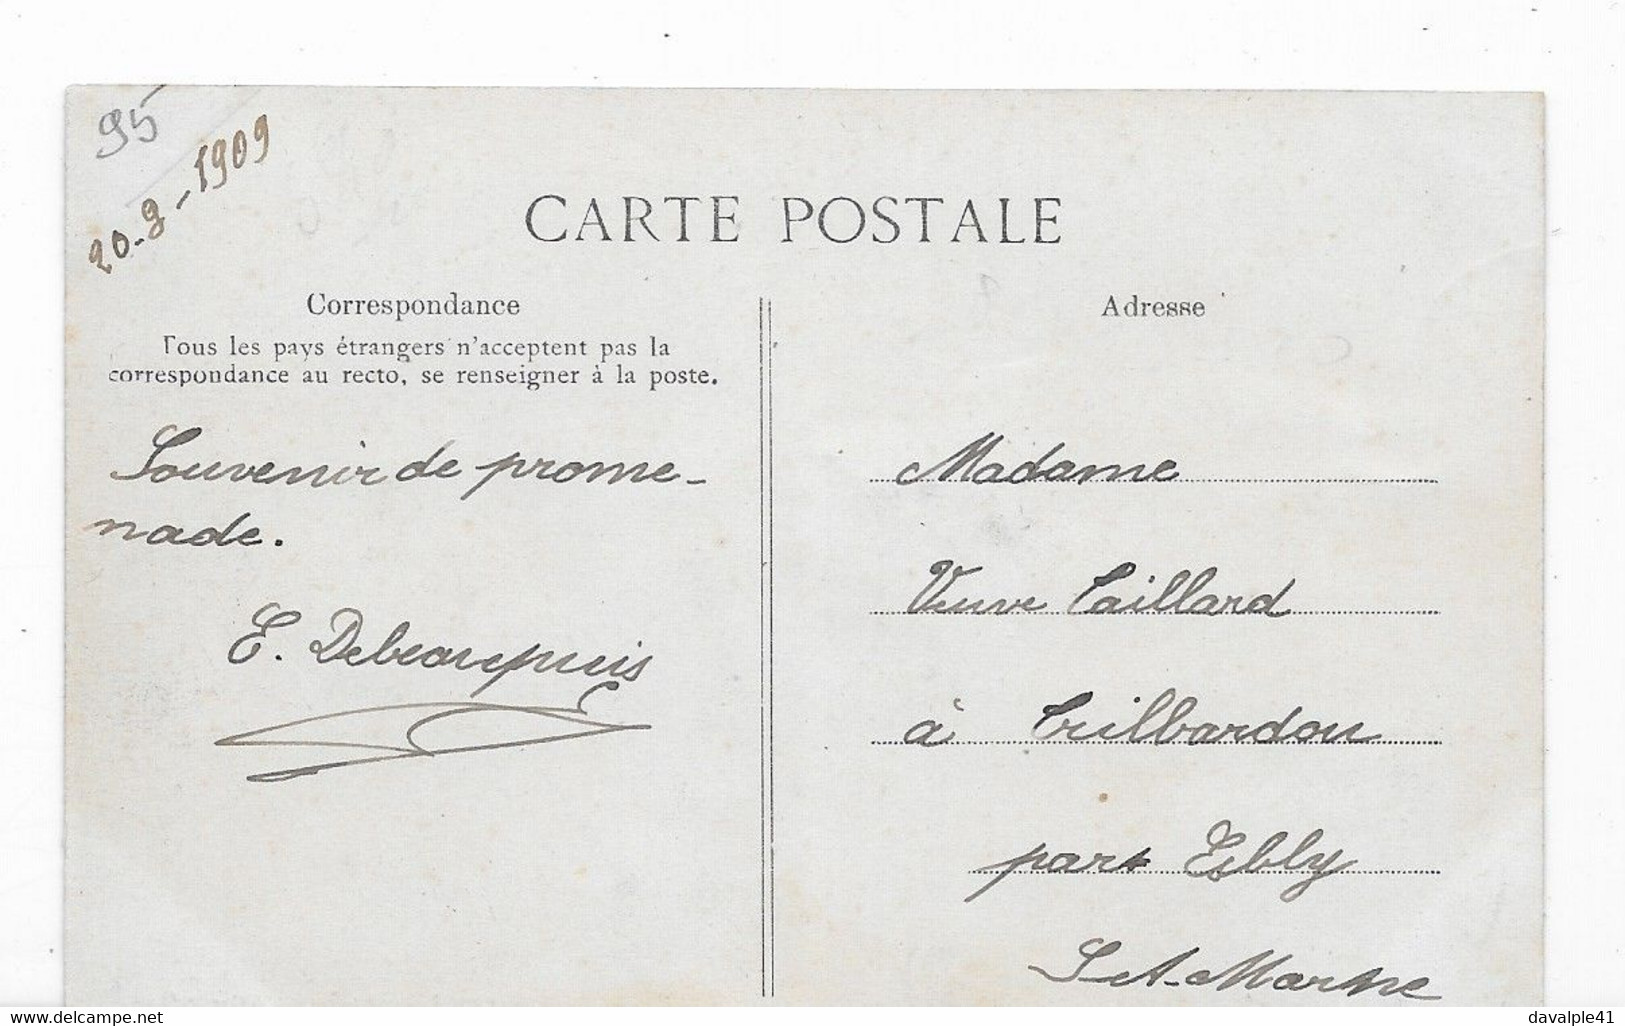 95
20-8-1909
CARTE POSTALE
Correspondance
Tous les pays étrangers n'acceptent pas la
correspondance au recto, se renseigner à la poste.
Souvenir de prome-
nade.
E. Debeaupuis
Adresse
Madame
Veuve Caillard
à Trilbardou
par Esbly
S-et-Marne
delcampe.net
davalple41